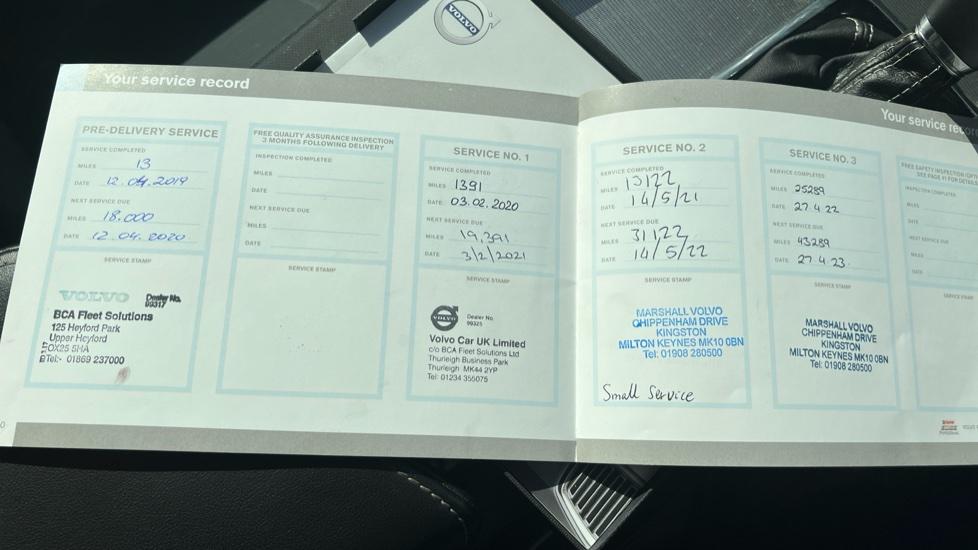 VOLVO
Your service record
PRE-DELIVERY SERVICE
SERVICE COMPLETED
MILES 13
DATE 12.04.2019
NEXT SERVICE DUE
MILES 18.000
DATE 12.04.2020
SERVICE STAMP
VOLVO Dealer No.
99317
BCA Fleet Solutions
125 Heyford Park
Upper Heyford
OX25 5HA
Tel:- 01869 237000
FREE QUALITY ASSURANCE INSPECTION
3 MONTHS FOLLOWING DELIVERY
INSPECTION COMPLETED
MILES
DATE
NEXT SERVICE DUE
MILES
DATE
SERVICE STAMP
SERVICE NO. 1
SERVICE COMPLETED
MILES 1391
DATE 03.02.2020
NEXT SERVICE DUE
MILES 19,391
DATE 3/2/2021
SERVICE STAMP
VOLVO
Dealer No.
99325
Volvo Car UK Limited
c/o BCA Fleet Solutions Ltd
Thurleigh Business Park
Thurleigh MK44 2YP
Tel: 01234 355075
Your service rec
SERVICE NO. 2
SERVICE COMPLETED
MILES 13122
DATE 14/5/21
NEXT SERVICE DUE
MILES 31122
DATE 14/5/22
SERVICE STAMP
MARSHALL VOLVO
CHIPPENHAM DRIVE
KINGSTON
MILTON KEYNES MK10 0BN
Tel: 01908 280500
Small Service
SERVICE NO. 3
SERVICE COMPLETED
MILES 25289
DATE 27.4.22
NEXT SERVICE DUE
MILES 43289
DATE 27.4.23
SERVICE STAMP
MARSHALL VOLVO
CHIPPENHAM DRIVE
KINGSTON
MILTON KEYNES MK10 0BN
Tel: 01908 280500
FREE SAFETY INSPECTION
SEE PAGE 41 FOR DETAILS
INSPECTION COMPLETED
MILES
DATE
NEXT SERVICE DUE
MILES
DATE
SERVICE STAMP
VOLVO